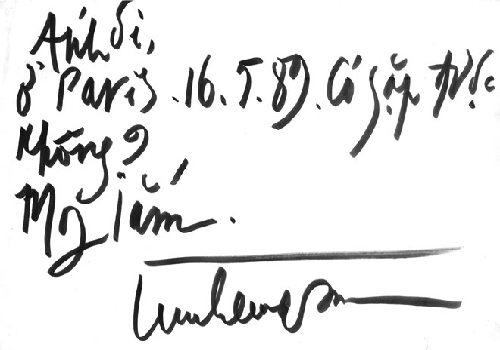 Anh ơi,
ở Paris. 16.5.89. Có gặp được
không?
Mg lắm.